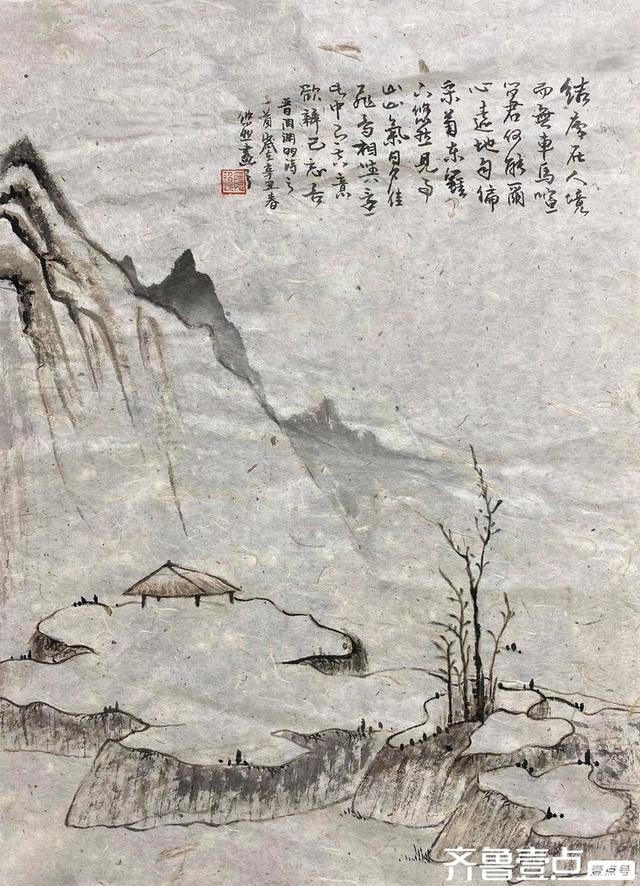 結廬在人境
而無車馬喧
問君何能爾
心遠地自偏
采菊東籬
下悠然見南
山山氣日夕佳
飛鳥相與還
此中有真意
欲辨已忘言
晉陶淵明詩之
首歲在辛丑春
畫
齐鲁壹点
壹点号